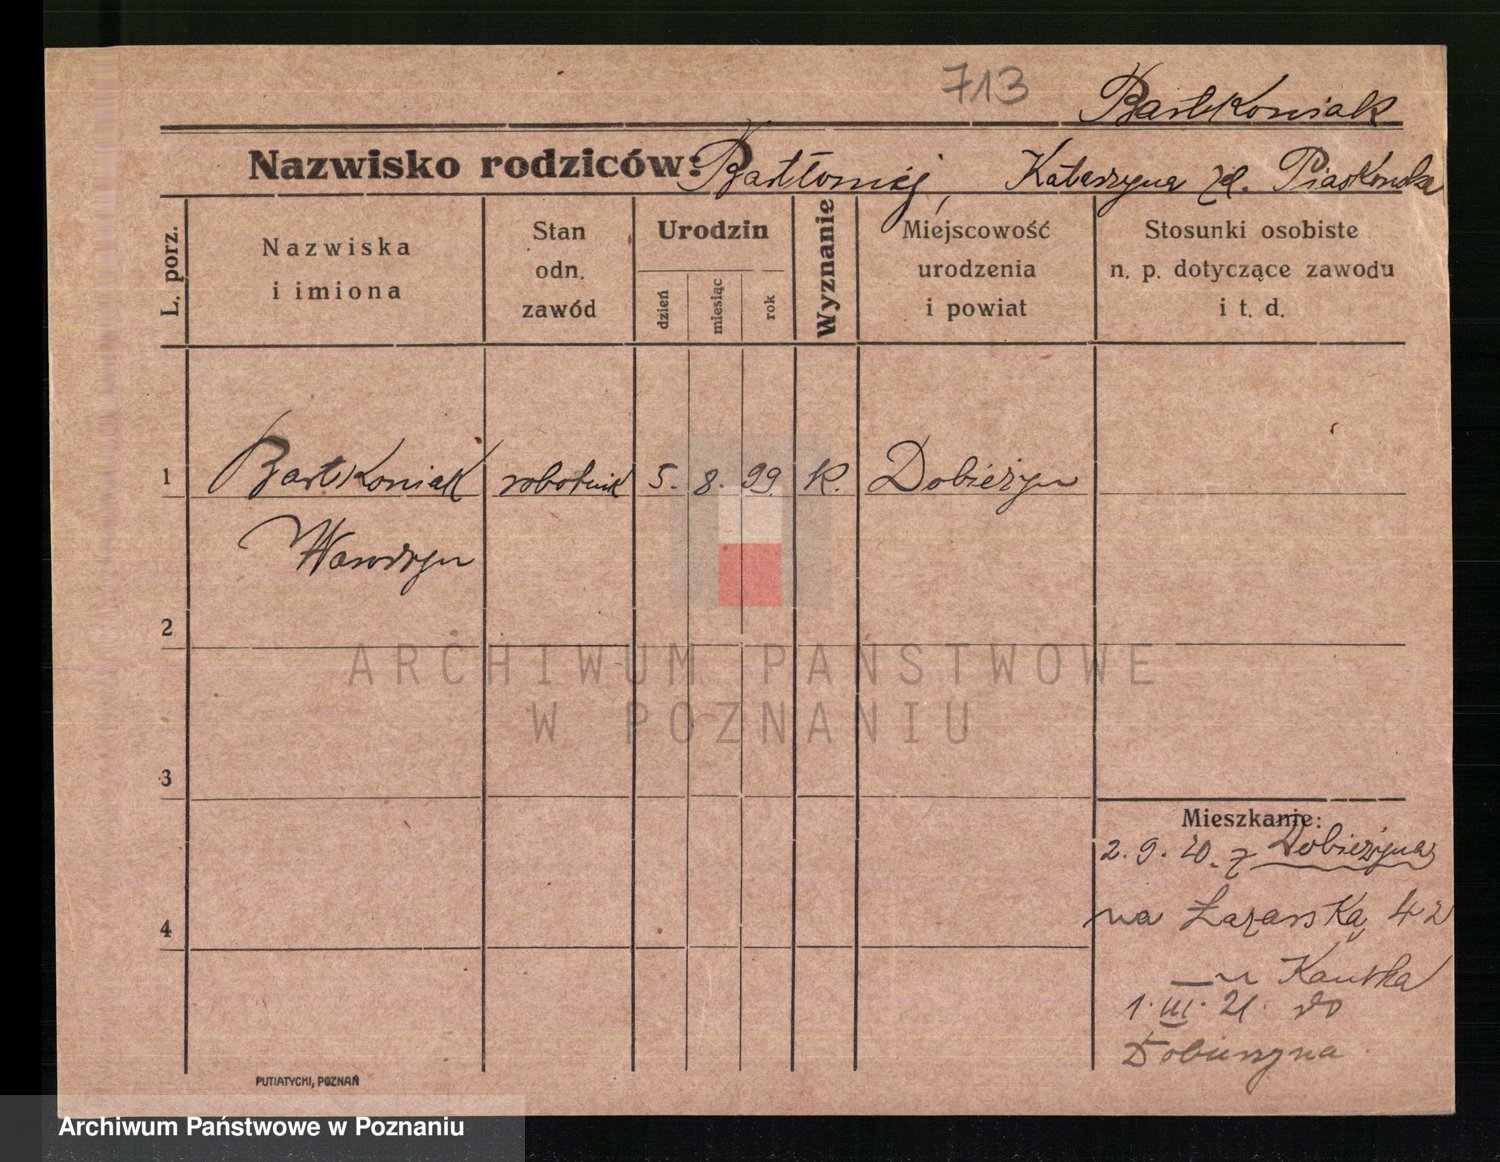 713
Bartkowiak
Nazwisko rodziców: Bartłomiej, Katarzyna zd. Piaskowska
L. porz.
Nazwiska
i imiona
Stan
odn.
zawód
Urodzin
dzień
miesiąc
rok
Wyznanie
Miejscowość
urodzenia
i powiat
Stosunki osobiste
n. p. dotyczące zawodu
i t. d.
1 Bartkowiak robotnik 5. 8. 99 k. Dobieżyn
Wawrzyn
2
ARCHIWUM PAŃSTWOWE
W POZNANIU
3
Mieszkanie:
2. 9. 20. z Dobieżyna
na Łazarską 42
u
1. III. 21. do
4
PUTIATYCKI, POZNAŃ
Archiwum Państwowe w Poznaniu